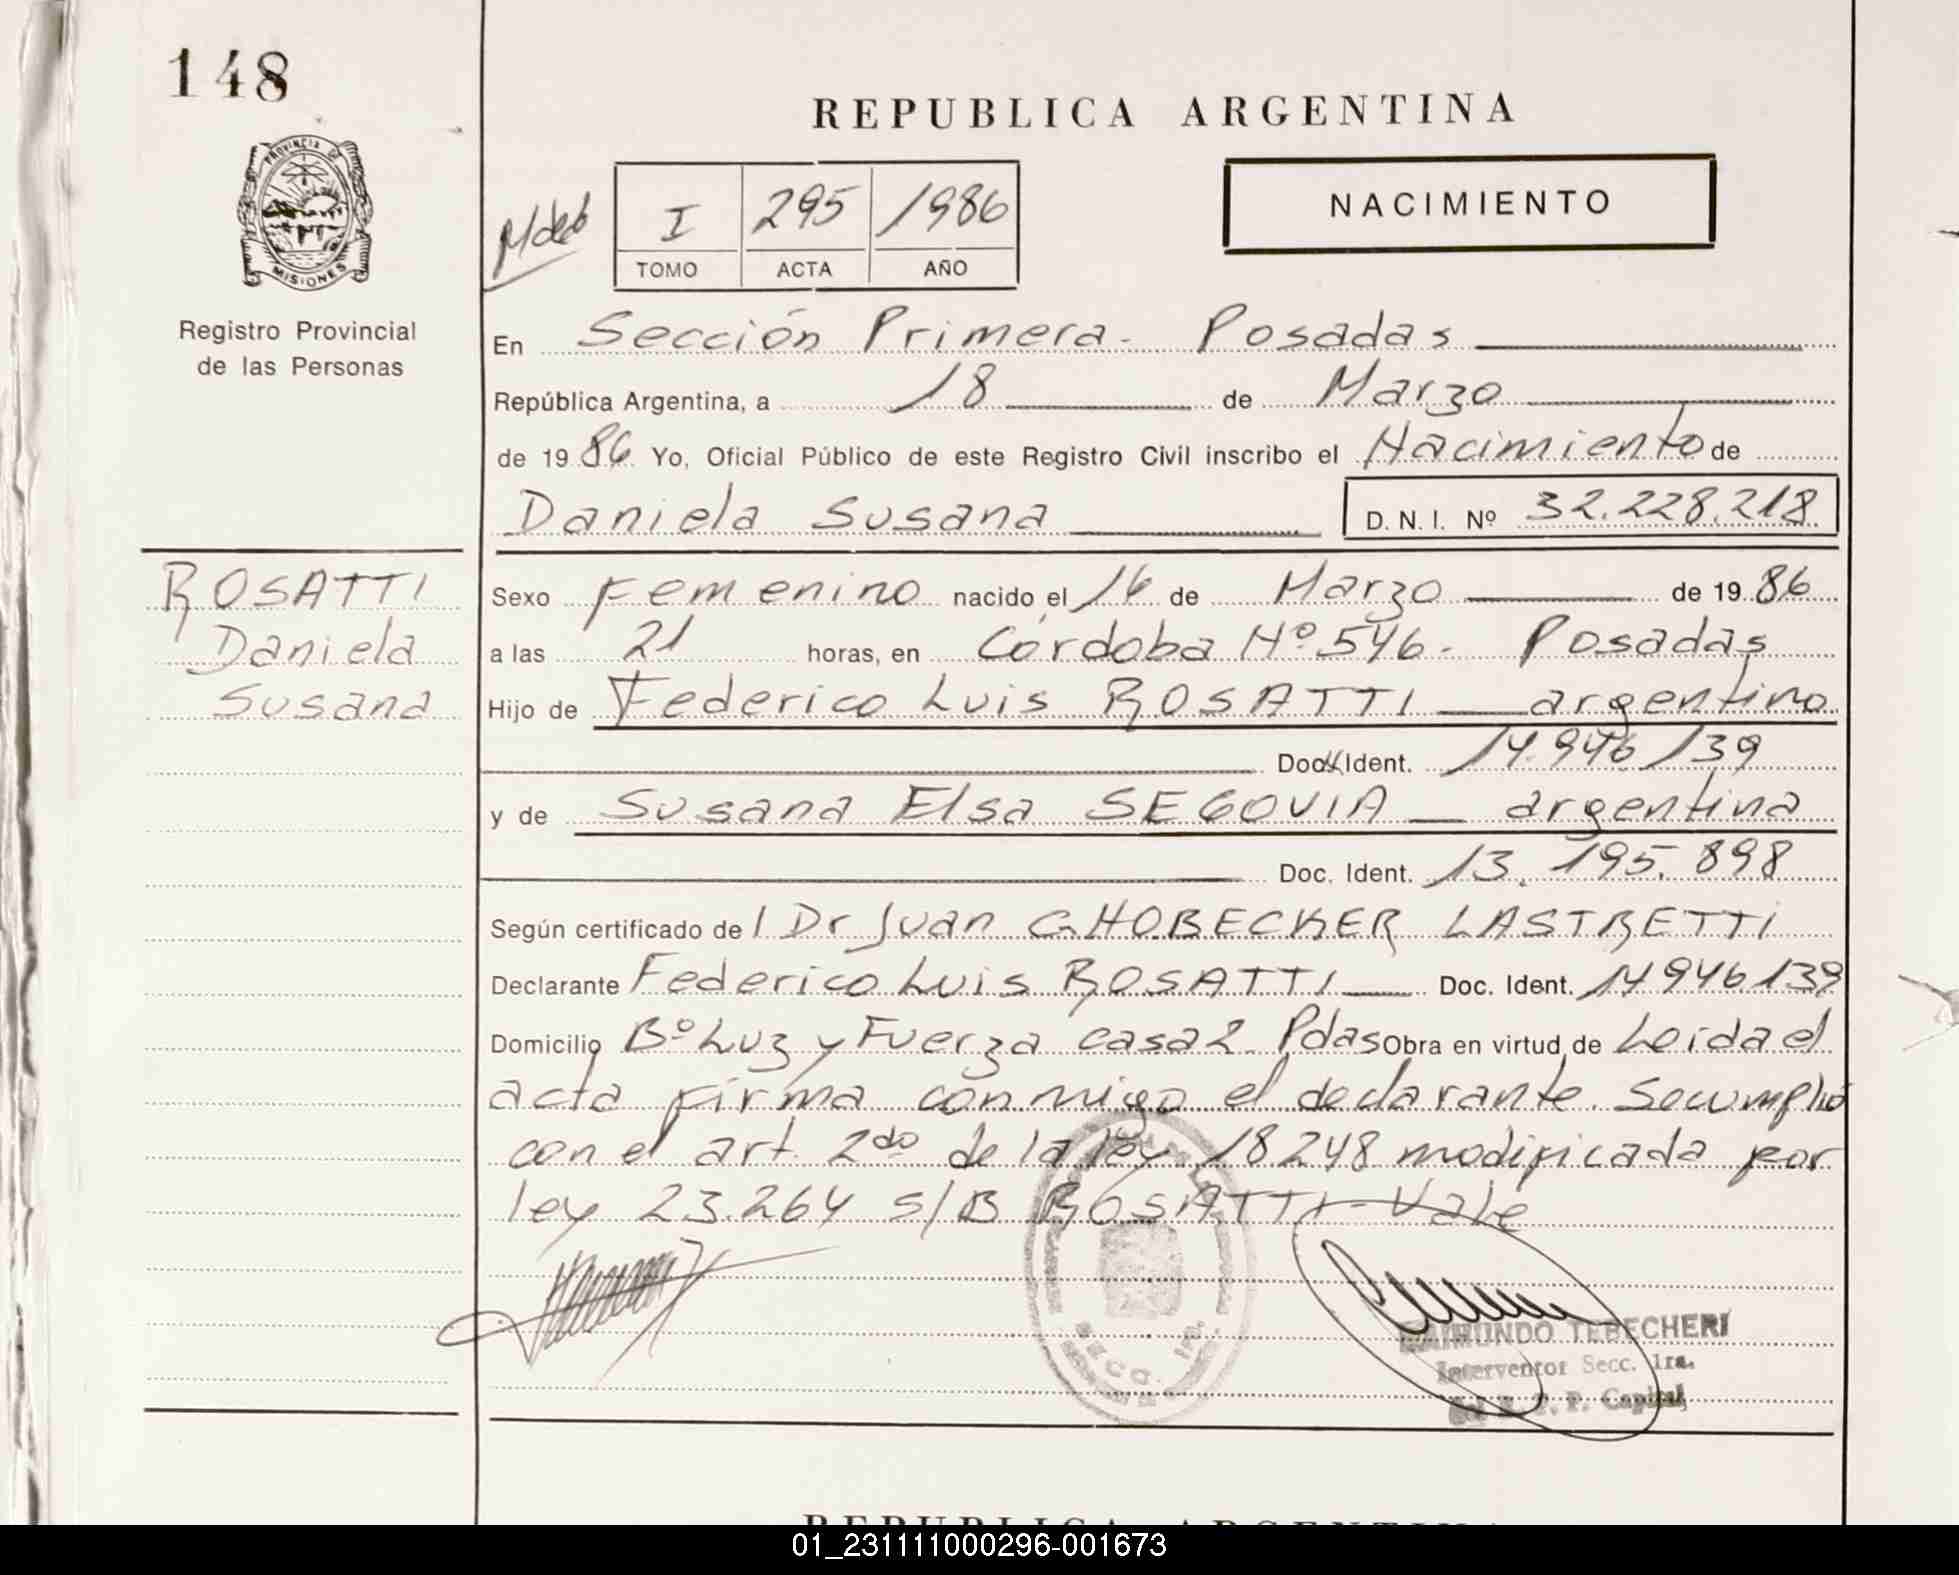 148
REPUBLICA ARGENTINA
PROVINCIA DE
MISIONES
Registro Provincial
de las Personas
I 295 1986
TOMO ACTA AÑO
NACIMIENTO
En Sección Primera - Posadas
República Argentina, a 18 de Marzo
de 1986 Yo, Oficial Público de este Registro Civil inscribo el Nacimiento de
Daniela Susana D. N. I. Nº 32.228.218
ROSATTI
Daniela
Susana
Sexo Femenino nacido el 16 de Marzo de 1986
a las 21 horas, en Córdoba Nº 546 - Posadas
Hijo de Federico Luis ROSATTI argentino
Doc. Ident. 14.946139
y de Susana Elsa SEGOVIA argentina
Doc. Ident. 13.195.898
Según certificado del Dr Juan G. HOBECKER LASTRETTI
Declarante Federico Luis ROSATTI Doc. Ident. 14946139
Domicilio Bº Luz y Fuerza casa 2 Pdas Obra en virtud de Leida el
acta firma conmigo el declarante. Se cumplió
con el art. 2do de la ley 18.248 modificada por
ley 23.264 s/B ROSATTI - Vale
SECC. 1ra.
RAIMUNDO TEBECHERI
Interventor Secc. 1ra.
del R. P. P. Capital
REPUBLICA ARGENTINA
01_231111000296-001673